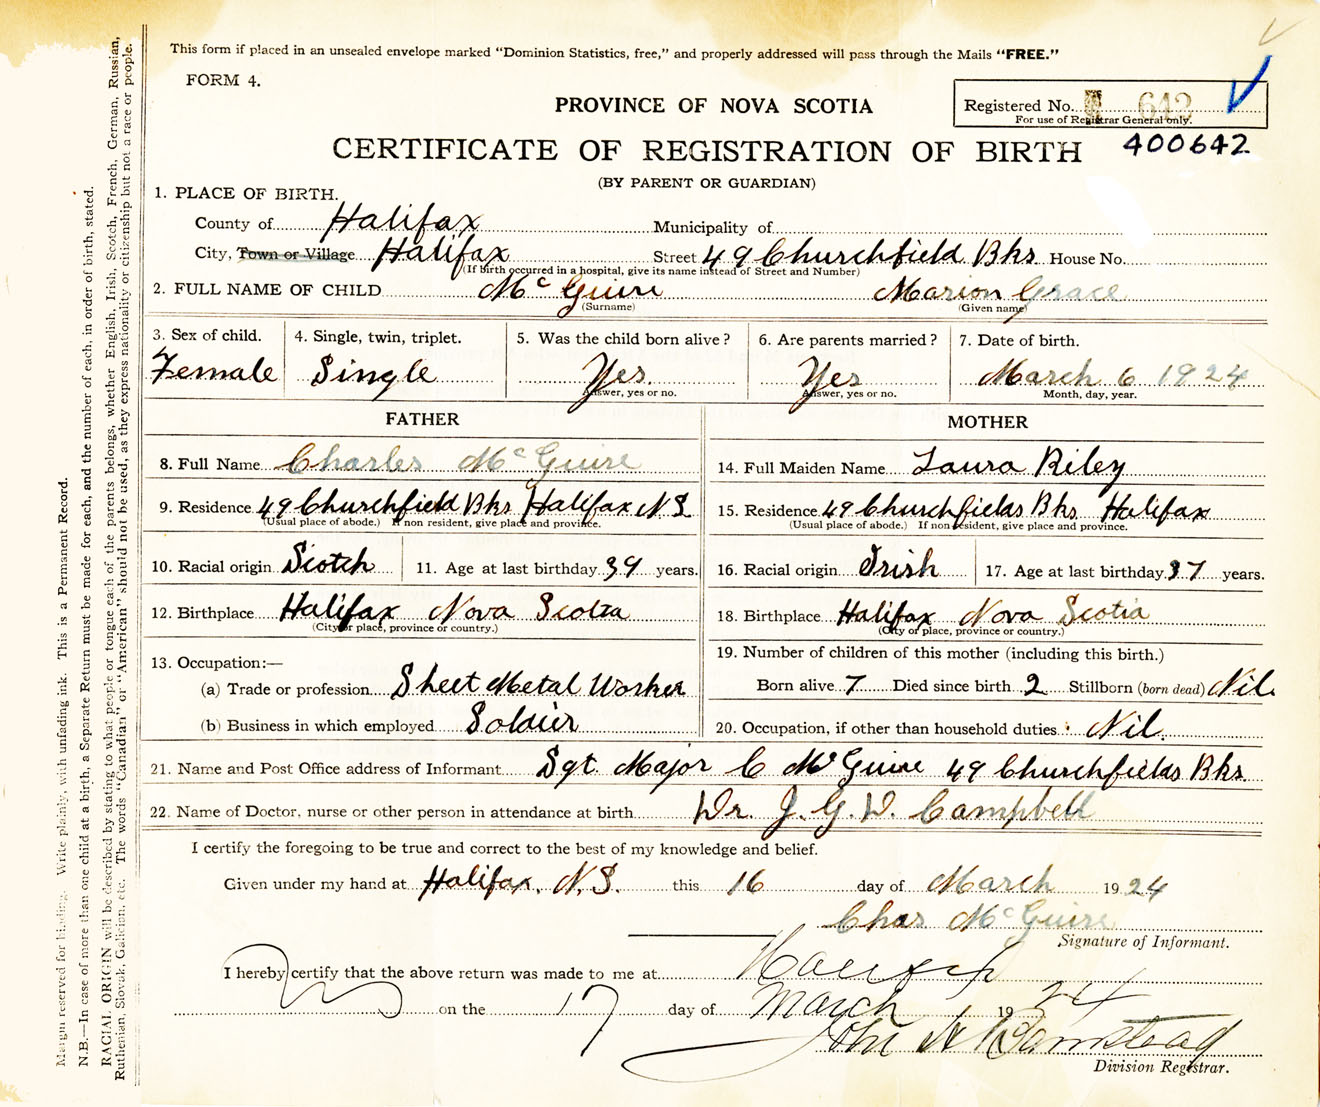 This form if placed in an unsealed envelope marked "Dominion Statistics, free," and properly addressed will pass through the Mails "FREE."
FORM 4.
PROVINCE OF NOVA SCOTIA
Registered No. 642
For use of Registrar General only.
CERTIFICATE OF REGISTRATION OF BIRTH 400642
(BY PARENT OR GUARDIAN)
1. PLACE OF BIRTH.
County of Halifax Municipality of
City, Town or Village Halifax Street 49 Churchfield Bks House No.
(If birth occurred in a hospital, give its name instead of Street and Number)
2. FULL NAME OF CHILD McGuire Marion Grace
(Surname) (Given name)
3. Sex of child. 4. Single, twin, triplet. 5. Was the child born alive? 6. Are parents married? 7. Date of birth.
Female Single Yes Yes March 6 1924
Answer, yes or no. Answer, yes or no. Month, day, year.
FATHER MOTHER
8. Full Name Charles McGuire 14. Full Maiden Name Laura Riley
9. Residence 49 Churchfield Bks Halifax N S 15. Residence 49 Churchfields Bks Halifax
(Usual place of abode.) If non resident, give place and province. (Usual place of abode.) If non resident, give place and province.
10. Racial origin Scotch 11. Age at last birthday 39 years. 16. Racial origin Irish 17. Age at last birthday 37 years.
12. Birthplace Halifax Nova Scotia 18. Birthplace Halifax Nova Scotia
(City or place, province or country.) (City or place, province or country.)
13. Occupation:— 19. Number of children of this mother (including this birth.)
(a) Trade or profession Sheet Metal Worker Born alive 7 Died since birth 2 Stillborn (born dead) Nil.
(b) Business in which employed Soldier 20. Occupation, if other than household duties Nil.
21. Name and Post Office address of Informant Sgt Major C McGuire 49 Churchfields Bks
22. Name of Doctor, nurse or other person in attendance at birth Dr. J. G. D. Campbell
I certify the foregoing to be true and correct to the best of my knowledge and belief.
Given under my hand at Halifax, N.S. this 16 day of March 1924
Chas McGuire
Signature of Informant.
I hereby certify that the above return was made to me at Halifax
on the 17 day of March 1924
John A
Division Registrar.
Margin reserved for binding. Write plainly, with unfading ink. This is a Permanent Record.
N.B.—In case of more than one child at a birth, a Separate Return must be made for each, and the number of each, in order of birth, stated.
RACIAL ORIGIN will be described by stating to what people or tongue each of the parents belongs, whether English, Irish, Scotch, French, German, Russian,
Ruthenian, Slovak, Galician, etc. The words "Canadian" or "American" should not be used, as they express nationality or citizenship but not a race or people.